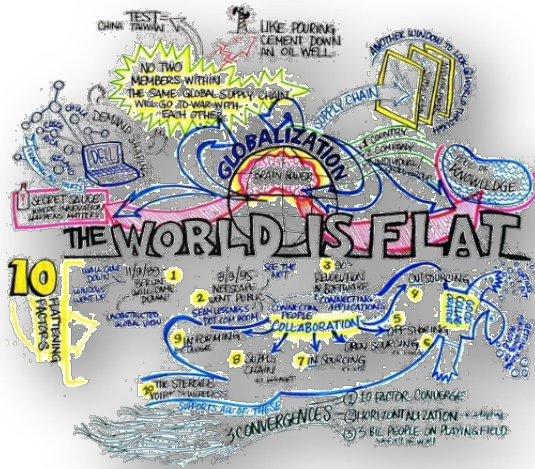 TEST=
CHINA TAIWAN
LIKE POURING
CEMENT DOWN
AN OIL WELL
NO TWO
MEMBERS WITHIN
THE SAME GLOBAL SUPPLY CHAIN
WILL GO TO WAR WITH
EACH OTHER
ANOTHER WINDOW TO LOOK
SUPPLY CHAIN
DEMAND
DELL
GLOBALIZATION
BRAIN POWER
COUNTRY
COMPANY
INDIVIDUAL
KNOWLEDGE
SECRET SAUCE
THE WORLD IS FLAT
10
FLATTENING
FACTORS
WALL CAME
DOWN
WINDOWS
WENT UP
11/9/89
BERLIN
WALL CAME
DOWN!
UNOBSTRUCTED
GLOBAL VIEW
1
2
NETSCAPE
WENT PUBLIC
SEAMLESSNESS
DOT.COM BOOM
SEE THE
3
90's
REVOLUTION
IN SOFTWARE
CONNECTING
PEOPLE
CONNECTING APPLICATIONS
COLLABORATION
4
OUTSOURCING
5
OFFSHORING
6
OPEN SOURCING
7 IN SOURCING
8 SUPPLY
CHAIN
9
IN FORMING
GOOGLE
10 THE STEROIDS
VOIP WIRELESS
SUPPORTS ALL OF THESE
3 CONVERGENCES
1 10 FACTOR CONVERGE
2 HORIZONTALIZATION
3 3 BIL PEOPLE ON PLAYING FIELD